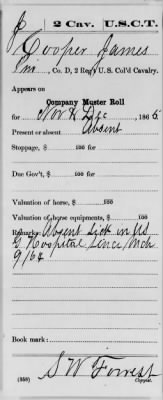 C | 2 Cav. | U.S.C.T.
Cooper James
Pvt., Co. D, 2 Reg't U. S. Col'd Cavalry.
Appears on
Company Muster Roll
for Nov & Dec, 1865
Present or absent Absent
Stoppage, $ 100 for
Due Gov't, $ 100 for
Valuation of horse, $ 100
Valuation of horse equipments, $ 100
Remarks: Absent Sick in US
G. Hospital since Mch
9/64
Book mark:
S W Forrest
(358) Copyist.